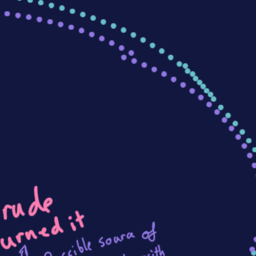 rude
urned it
ssible soara of
with